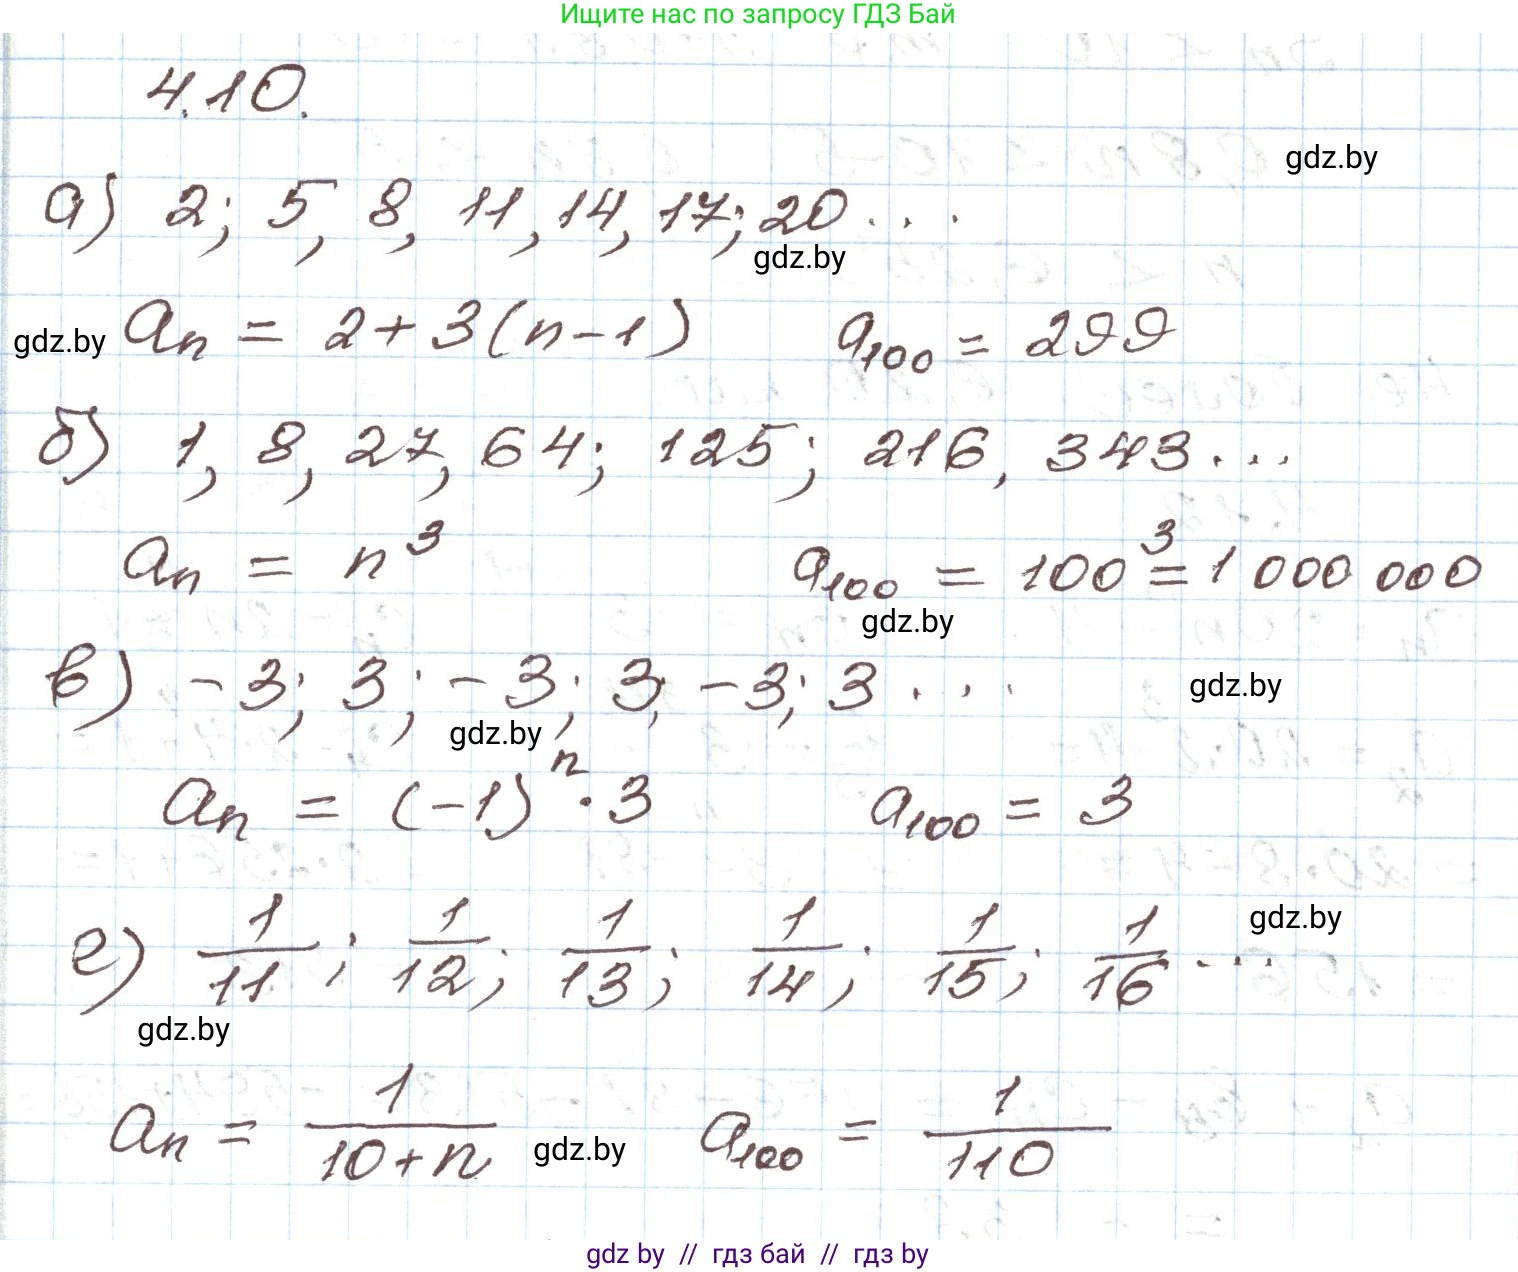 Ищите нас по запросу ГДЗ Бай
4.10.
gdz.by
а) 2; 5, 8, 11, 14, 17; 20...
gdz.by
gdz.by
aₙ = 2+3(n-1) a₁₀₀ = 299
б) 1, 8, 27, 64; 125; 216, 343...
aₙ = n³ a₁₀₀ = 100³ = 1 000 000
gdz.by
в) -3; 3; -3; 3; -3; 3 ...
gdz.by
gdz.by
aₙ = (-1)ⁿ·3 a₁₀₀ = 3
gdz.by
г) 1/11; 1/12; 1/13; 1/14; 1/15; 1/16...
gdz.by
aₙ = 1/(10+n) a₁₀₀ = 1/110
gdz.by
gdz by // гдз бай // гдз by